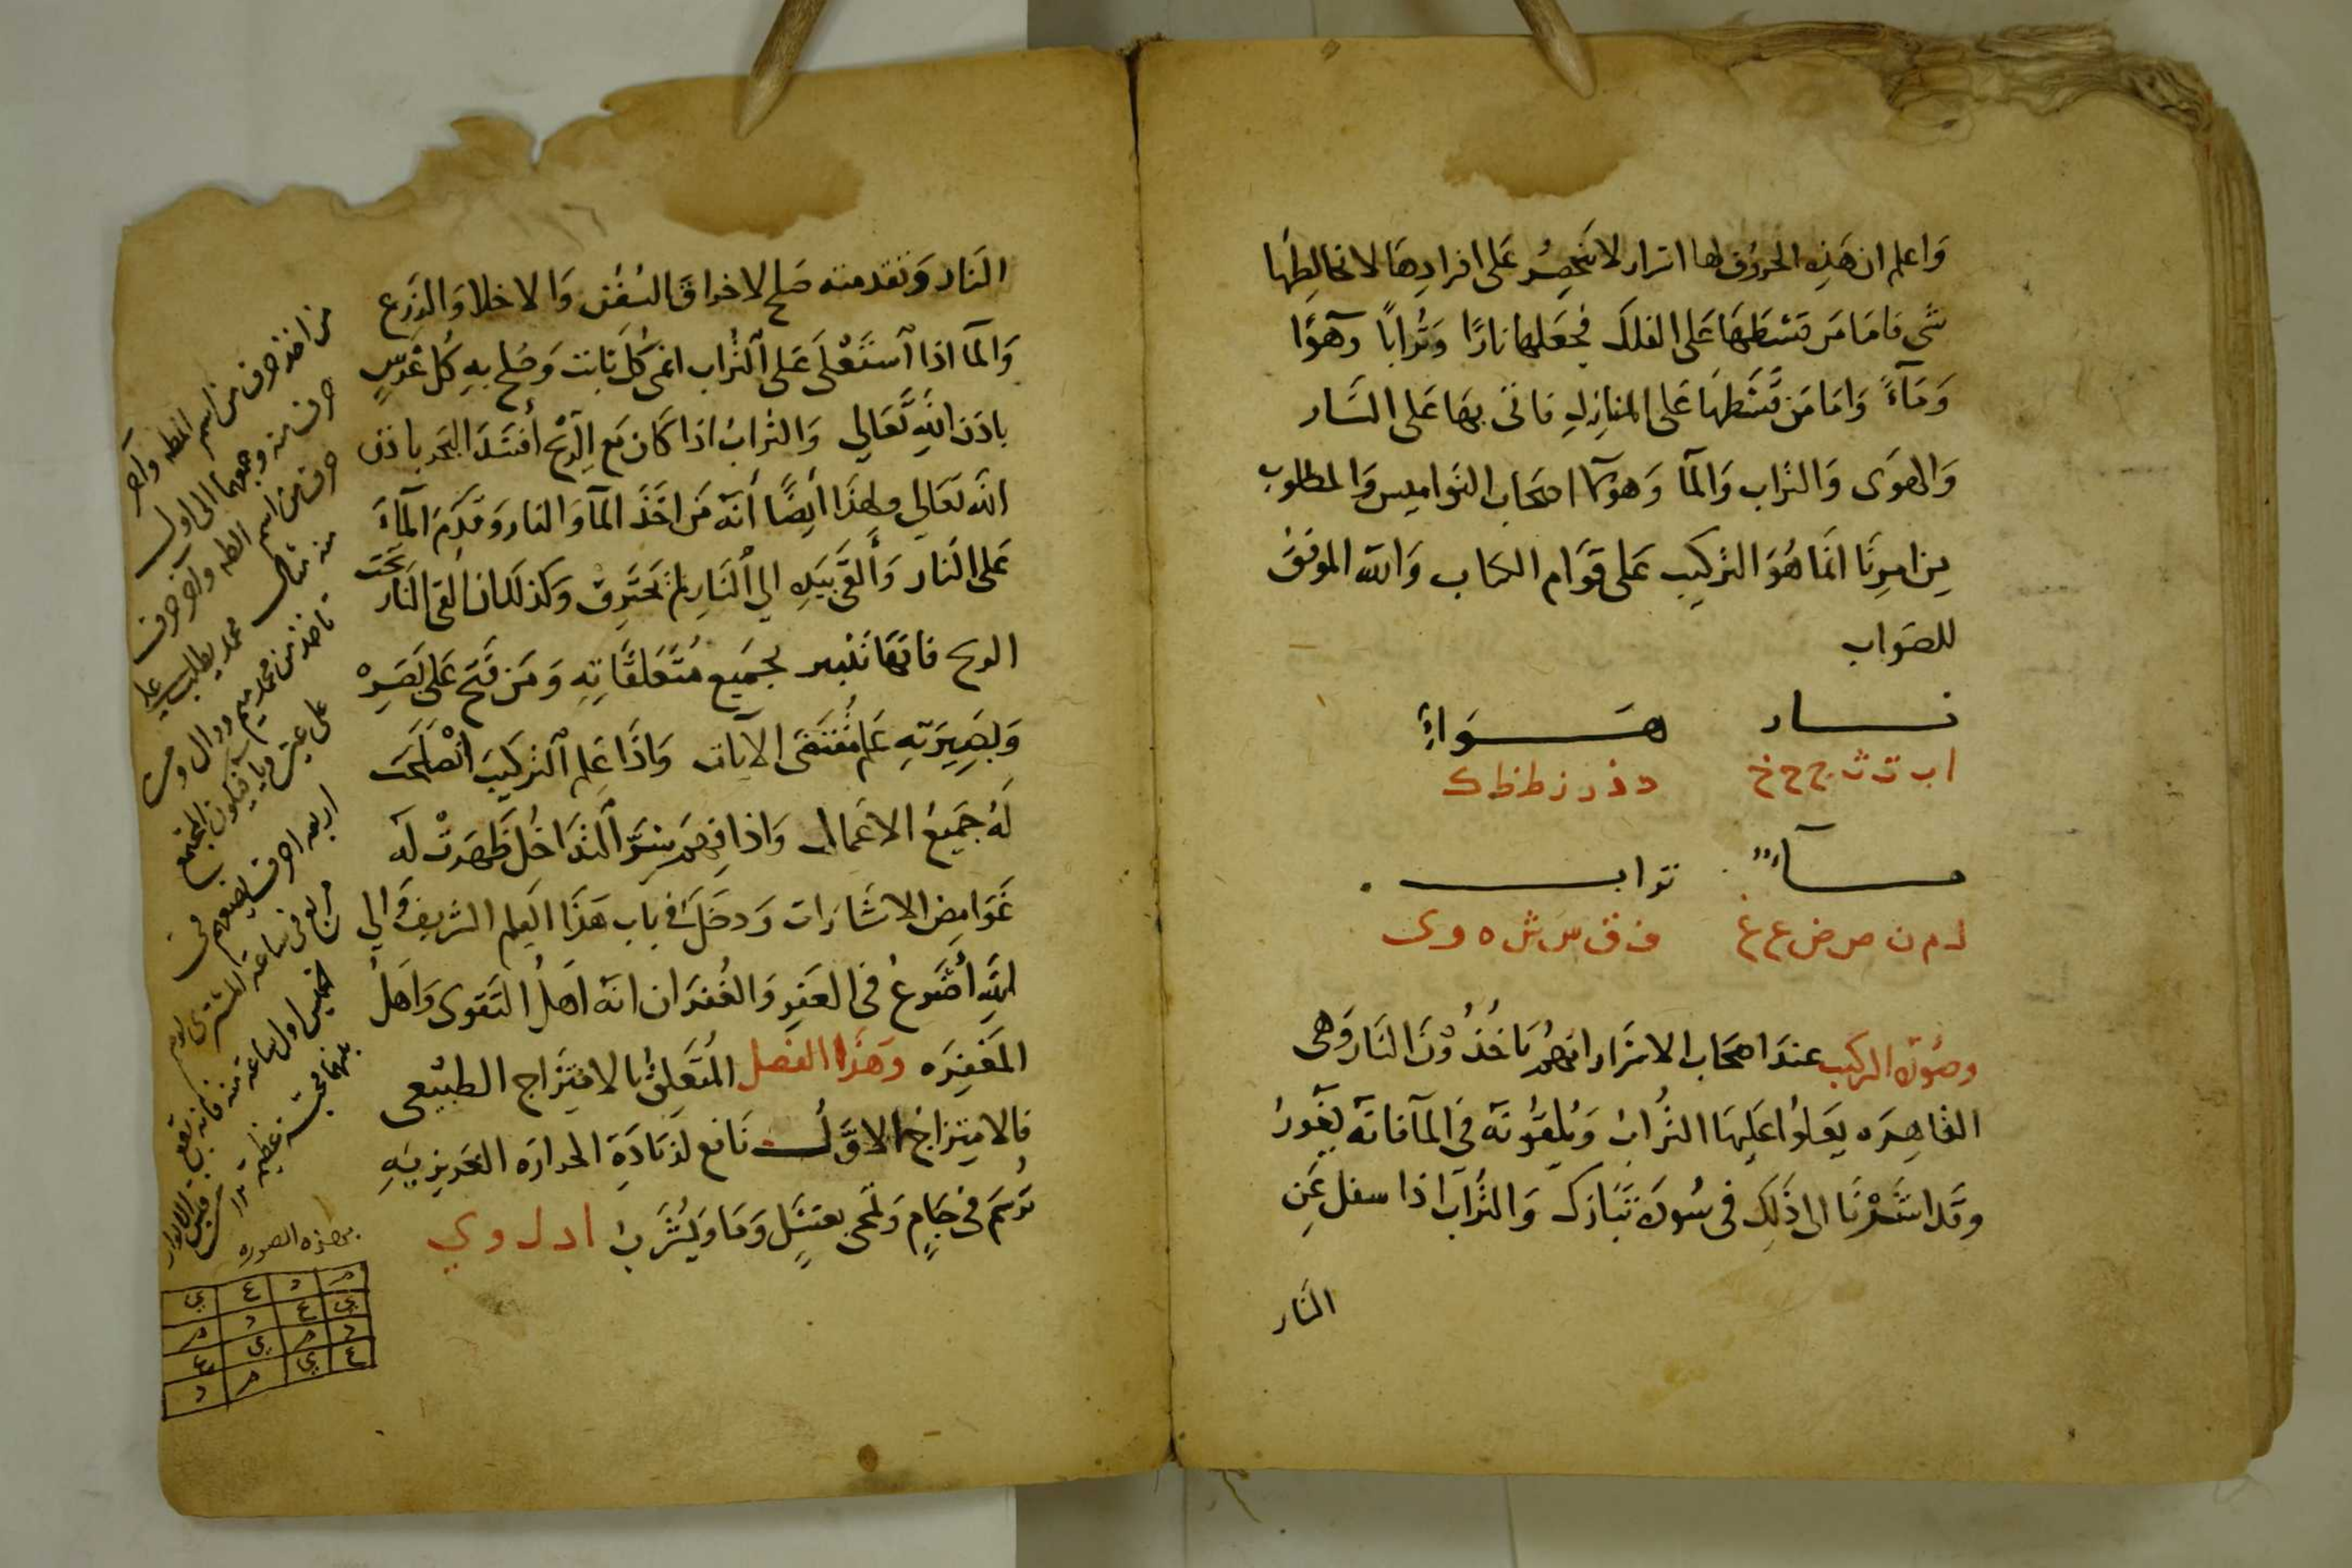 واعلم ان هذه الحروف لها اسرار لا تنحصر على افرادها لا تخالطها
شى فاما من قسطها على الفلك فجعلها نارًا وترابًا وهوًا
ومآءً واما من قسطها على المنازل فاتى بها على النار
والهوى والتراب والمآ وهو كما اصحاب النواميس والمطلوب
من امرنا انما هو التركيب على قوام الكتاب والله الموفق
للصواب
نار هواء
ا ب ت ث ج ح خ د ذ ر ز ط ظ ك
مآء تراب
ل م ن ص ض ع غ ف ق س ش ه و ى
وصورة التركيب عند اصحاب الاسرار انهم ياخذون النار وهى
القاهره يعلوا عليها التراب ويلقونه فى المآ فانه يغور
وقد اشرنا الى ذلك فى سورة تبارك والتراب اذا سفل عن
النار
النار وتقدمته صلح لاحراق السفن والاخلا والزرع
والمآ اذا استعلى على التراب انمى كل نابت وصلح به كل غرس
باذن الله تعالي والتراب اذا كان مع الريح افسد البحر باذن
الله تعالي ولهذا أيضًا أنه من اخذ المآ والنار وقدم المآء
على النار وألقى بيده الي النار لم تحترق وكذلك ان القى النار تحت
الريح فانها تسير بجميع متعلقاته ومن فتح على بصره
وبصيرته علم مقتضى الايات واذا علم التركيب انصلحت
له جميع الاعمال واذا فهم سر التداخل ظهرت له
غوامض الاشارات ودخل فى باب هذا العلم الشريف والي
الله أضرع فى العفو والغفران انه اهل التقوى واهل
المغفره وهذا الفصل المتعلق بالامتزاج الطبيعى
فالامتزاج الاول نافع لزيادة الحرارة الغريزيه
ترسم فى جام وتمحى بعسل وما ويشرب ا د ل و ي
من اخذ حرف من اسم
حرف منه وجمعها الى اول
حرف من اسم واخر حرف
منه مثال محمد يطلب علي
تاخذ من محمد ميم ودال ومن
على عين ويا فيكون المجتمع
اربعه احرف يضعهم فى
مربع فى ساعة المشترى يوم
الخميس اول ساعة منه فانه يقع
بينهما محبة عظيمة
بهذه الصوره
م د ع ي
ي ع د م
د م ي ع
ع ي م د